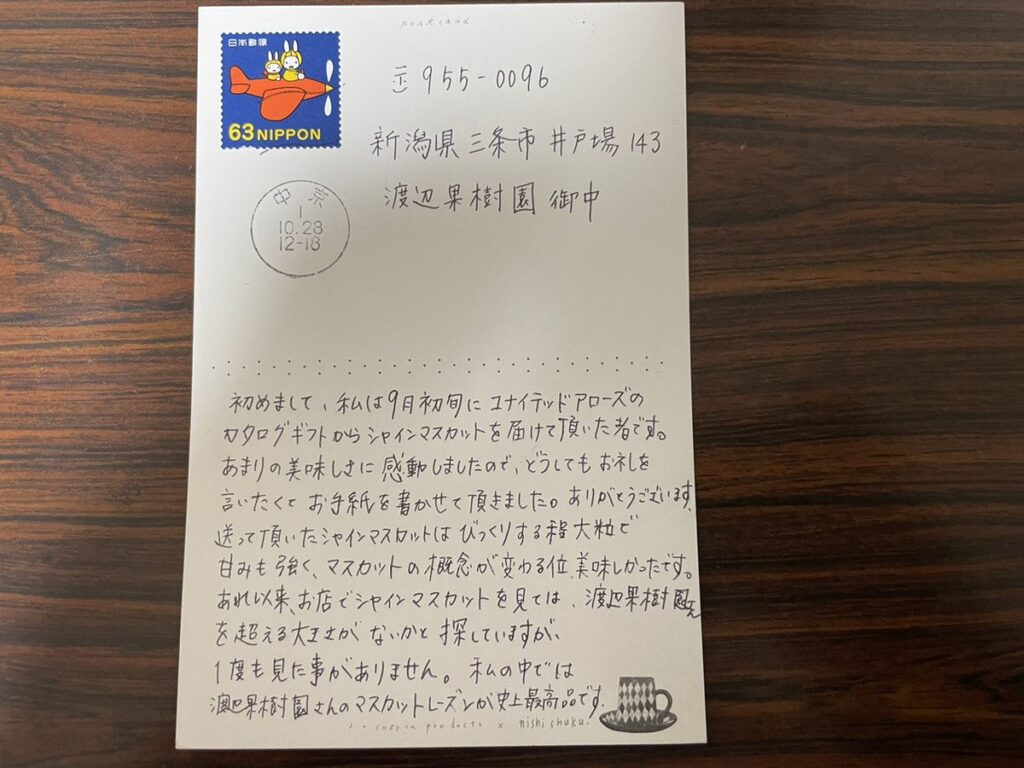 postcard
日本郵便
63 NIPPON
〒955-0096
新潟県三条市井戸場143
渡辺果樹園 御中
中京
1
10.28
12-18
初めまして、私は9月初旬にユナイテッドアローズの
カタログギフトからシャインマスカットを届けて頂いた者です。
あまりの美味しさに感動しましたので、どうしてもお礼を
言いたくてお手紙を書かせて頂きました。ありがとうございます。
送って頂いたシャインマスカットはびっくりする程大粒で
甘みも強く、マスカットの概念が変わる位、美味しかったです。
あれ以来、お店でシャインマスカットを見ては、渡辺果樹園さん
を超える大きさがないかと探していますが、
1度も見た事がありません。私の中では
渡辺果樹園さんのマスカットレーズンが史上最高品です。
cozyca products x nishi shuku.